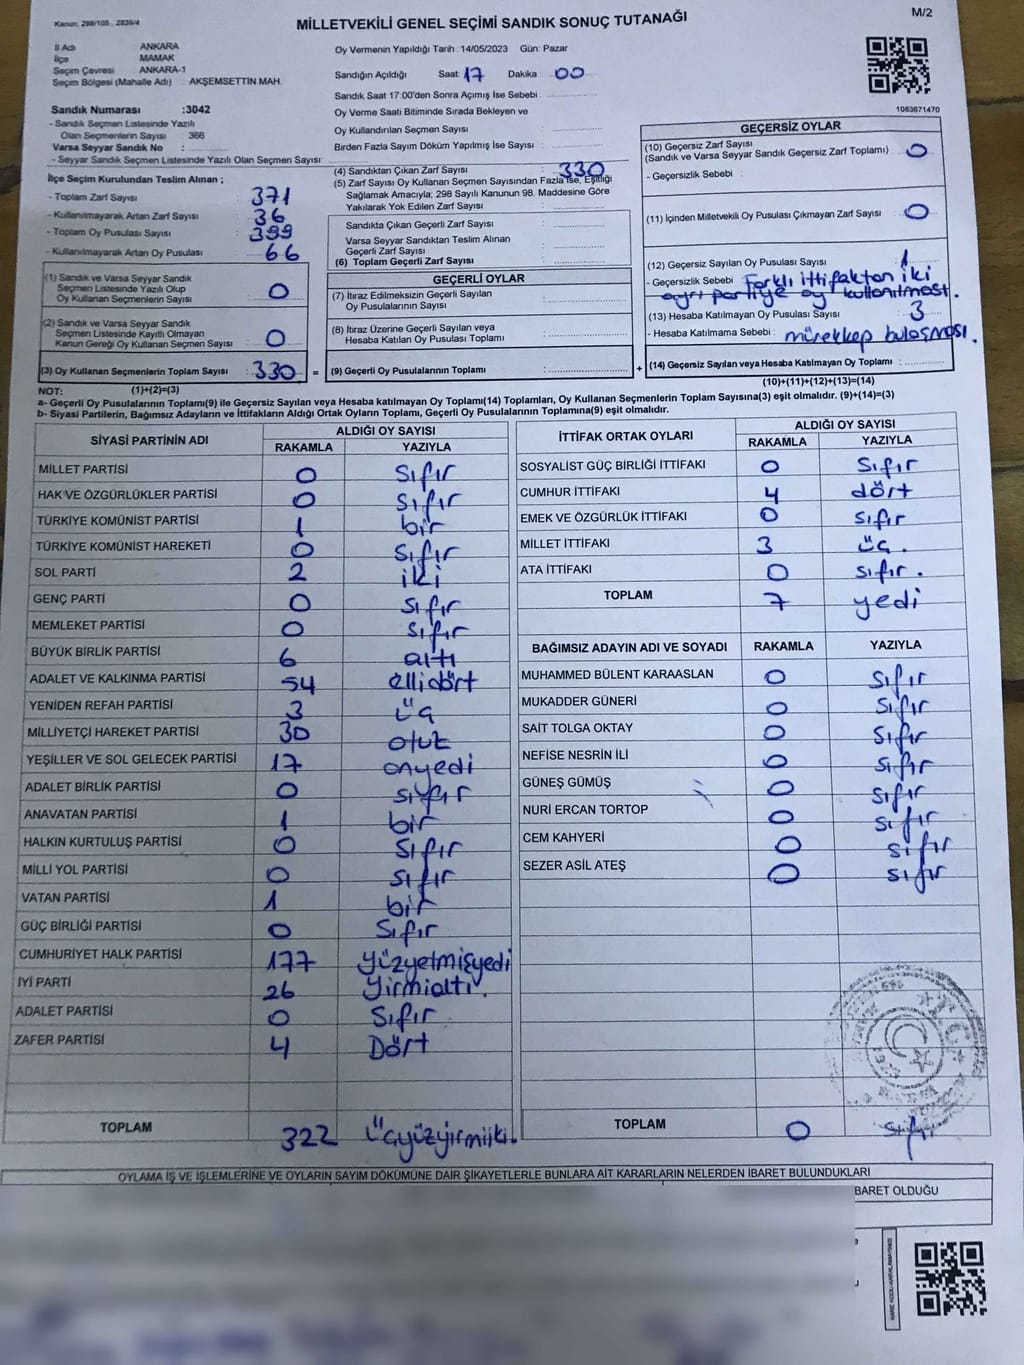 Kanun, 298/105 , 2839/4
MİLLETVEKİLİ GENEL SEÇİMİ SANDIK SONUÇ TUTANAĞI
M/2
İl Adı ANKARA
İlçe MAMAK
Seçim Çevresi ANKARA-1
Seçim Bölgesi (Mahalle Adı) : AKŞEMSETTİN MAH.
Sandık Numarası :3042
- Sandık Seçmen Listesinde Yazılı
Olan Seçmenlerin Sayısı 366
Varsa Seyyar Sandık No :
- Seyyar Sandık Seçmen Listesinde Yazılı Olan Seçmen Sayısı :
İlçe Seçim Kurulundan Teslim Alınan ;
- Toplam Zarf Sayısı : 371
- Kullanılmayarak Artan Zarf Sayısı : 36
- Toplam Oy Pusulası Sayısı : 399
- Kullanılmayarak Artan Oy Pusulası : 66
(1) Sandık ve Varsa Seyyar Sandık
Seçmen Listesinde Yazılı Olup
Oy Kullanan Seçmenlerin Sayısı : 0
(2) Sandık ve Varsa Seyyar Sandık
Seçmen Listesinde Kayıtlı Olmayan
Kanun Gereği Oy Kullanan Seçmen Sayısı : 0
(3) Oy Kullanan Seçmenlerin Toplam Sayısı : 330
Oy Vermenin Yapıldığı Tarih :14/05/2023 Gün: Pazar
Sandığın Açıldığı Saat: 17 Dakika : 00
Sandık Saat 17:00'den Sonra Açmış İse Sebebi :
Oy Verme Saati Bitiminde Sırada Bekleyen ve
Oy Kullandırılan Seçmen Sayısı :
Birden Fazla Sayım Döküm Yapılmış İse Sayısı :
(4) Sandıktan Çıkan Zarf Sayısı : 330
(5) Zarf Sayısı Oy Kullanan Seçmen Sayısından Fazla İse, Eşitliği
Sağlamak Amacıyla; 298 Sayılı Kanunun 98. Maddesine Göre
Yakılarak Yok Edilen Zarf Sayısı :
Sandıkta Çıkan Geçerli Zarf Sayısı :
Varsa Seyyar Sandıktan Teslim Alınan
Geçerli Zarf Sayısı :
(6) Toplam Geçerli Zarf Sayısı :
GEÇERLİ OYLAR
(7) İtiraz Edilmeksizin Geçerli Sayılan
Oy Pusulalarının Sayısı :
(8) İtiraz Üzerine Geçerli Sayılan veya
Hesaba Katılan Oy Pusulası Toplamı :
= (9) Geçerli Oy Pusulalarının Toplamı :
1083671470
GEÇERSİZ OYLAR
(10) Geçersiz Zarf Sayısı
(Sandık ve Varsa Seyyar Sandık Geçersiz Zarf Toplamı) : 0
- Geçersizlik Sebebi :
(11) İçinden Milletvekili Oy Pusulası Çıkmayan Zarf Sayısı : 0
(12) Geçersiz Sayılan Oy Pusulası Sayısı : 1
- Geçersizlik Sebebi : Farklı ittifaktan iki
ayrı partiye oy kullanılmast.
(13) Hesaba Katılmayan Oy Pusulası Sayısı : 3
- Hesaba Katılmama Sebebi : mürekkep bulaşması.
+ (14) Geçersiz Sayılan veya Hesaba Katılmayan Oy Toplamı :
NOT: (1)+(2)=(3) (10)+(11)+(12)+(13)=(14)
a- Geçerli Oy Pusulalarının Toplamı(9) ile Geçersiz Sayılan veya Hesaba katılmayan Oy Toplamı(14) Toplamları, Oy Kullanan Seçmenlerin Toplam Sayısına(3) eşit olmalıdır. (9)+(14)=(3)
b- Siyasi Partilerin, Bağımsız Adayların ve İttifakların Aldığı Ortak Oyların Toplamı, Geçerli Oy Pusulalarının Toplamına(9) eşit olmalıdır.
SİYASİ PARTİNİN ADI ALDIĞI OY SAYISI
RAKAMLA YAZIYLA
MİLLET PARTİSİ 0 Sıfır
HAK VE ÖZGÜRLÜKLER PARTİSİ 0 sıfır
TÜRKİYE KOMÜNİST PARTİSİ 1 bir
TÜRKİYE KOMÜNİST HAREKETİ 0 sıfır
SOL PARTİ 2 iki
GENÇ PARTİ 0 sıfır
MEMLEKET PARTİSİ 0 sıfır
BÜYÜK BİRLİK PARTİSİ 6 altı
ADALET VE KALKINMA PARTİSİ 54 ellidört
YENİDEN REFAH PARTİSİ 3 üç
MİLLİYETÇİ HAREKET PARTİSİ 30 otuz
YEŞİLLER VE SOL GELECEK PARTİSİ 17 onyedi
ADALET BİRLİK PARTİSİ 0 sıfır
ANAVATAN PARTİSİ 1 bir
HALKIN KURTULUŞ PARTİSİ 0 sıfır
MİLLİ YOL PARTİSİ 0 sıfır
VATAN PARTİSİ 1 bir
GÜÇ BİRLİĞİ PARTİSİ 0 Sıfır
CUMHURİYET HALK PARTİSİ 177 yüzyetmişyedi
İYİ PARTİ 26 Yirmialtı.
ADALET PARTİSİ 0 Sıfır
ZAFER PARTİSİ 4 Dört
TOPLAM 322 Üçyüzyirmiiki.
İTTİFAK ORTAK OYLARI ALDIĞI OY SAYISI
RAKAMLA YAZIYLA
SOSYALİST GÜÇ BİRLİĞİ İTTİFAKI 0 Sıfır
CUMHUR İTTİFAKI 4 dört
EMEK VE ÖZGÜRLÜK İTTİFAKI 0 sıfır
MİLLET İTTİFAKI 3 üç.
ATA İTTİFAKI 0 sıfır.
TOPLAM 7 yedi
BAĞIMSIZ ADAYIN ADI VE SOYADI RAKAMLA YAZIYLA
MUHAMMED BÜLENT KARAASLAN 0 sıfır
MUKADDER GÜNERİ 0 sıfır
SAİT TOLGA OKTAY 0 sıfır
NEFİSE NESRİN İLİ 0 sıfır
GÜNEŞ GÜMÜŞ 0 sıfır
NURİ ERCAN TORTOP 0 sıfır
CEM KAHYERİ 0 sıfır
SEZER ASİL ATEŞ 0 sıfır
TOPLAM 0 sıfır
OYLAMA İŞ VE İŞLEMLERİNE VE OYLARIN SAYIM DÖKÜMÜNE DAİR ŞİKAYETLERLE BUNLARA AİT KARARLARIN NELERDEN İBARET BULUNDUKLARI
BARET OLDUĞU